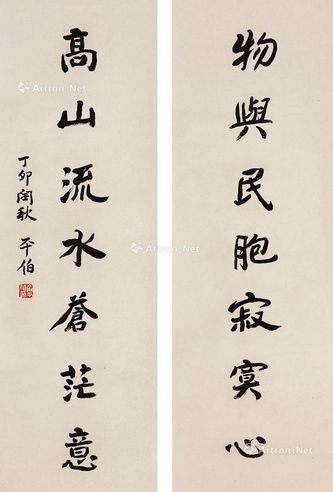 物與民胞寂寞心
高山流水蒼茫意
丁卯閏秋 平伯
Artron.Net
Artron.Net
Artron.Net
Artron.Net